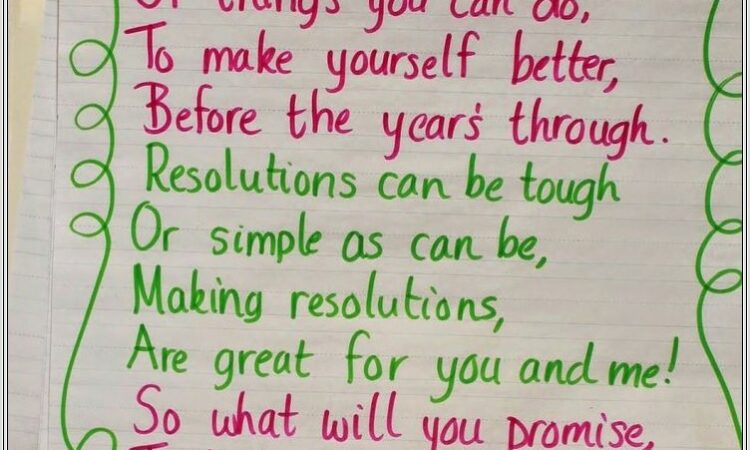 Of things you can do,
To make yourself better,
Before the year's through.
Resolutions can be tough
Or simple as can be,
Making resolutions,
Are great for you and me!
So what will you promise,